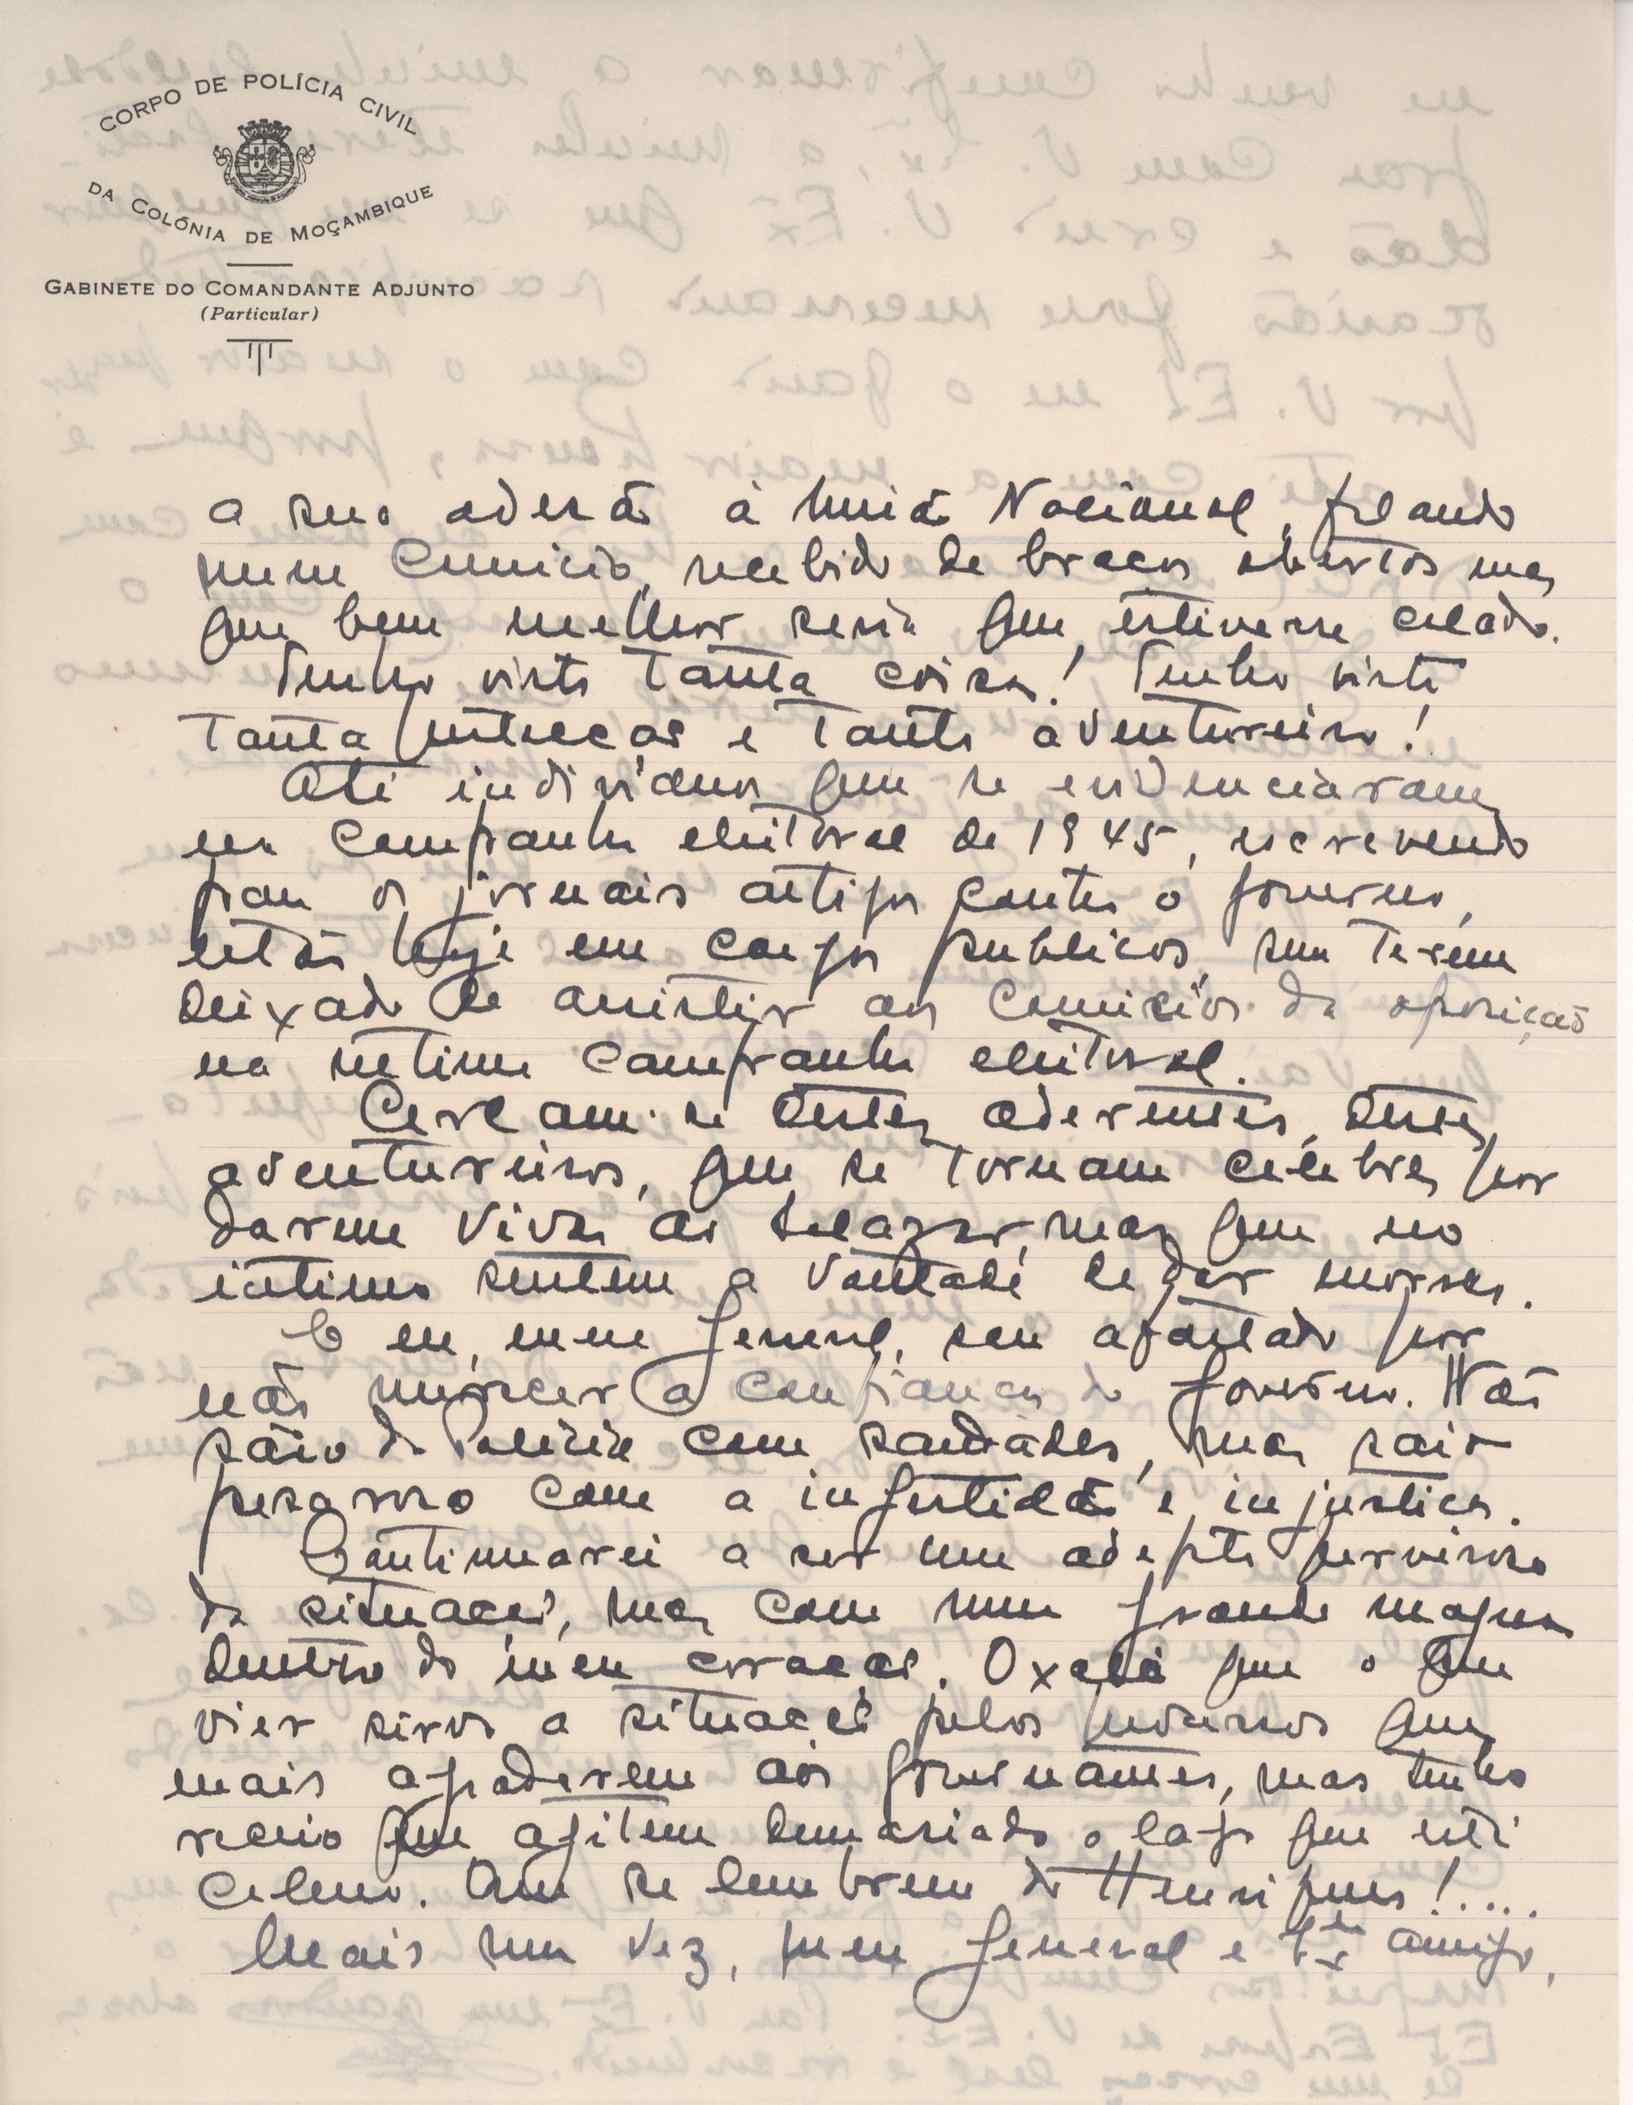 CORPO DE POLÍCIA CIVIL
DA COLÓNIA DE MOÇAMBIQUE
GABINETE DO COMANDANTE ADJUNTO
(Particular)
a sua adesão à União Nacional, falando
num comicio, recebido de braços abertos mas
que bem melhor seria que estivesse calado.
Tenho visto tanta coisa! Tenho visto
tanta intrujice e tanto aventureiro!
Até individuos que se evidenciaram
na campanha eleitoral de 1945, escrevendo
para os jornais artigos contra o governo,
estão hoje em cargos publicos, sem terem
deixado de assistir aos comicios da oposição
na ultima campanha eleitoral.
Cercam-se destes aderentes, destes
aventureiros, que se tornam celebres por
darem vivas ao Salazar, mas que no
intimo sentem a vontade de dar morras.
E eu, meu General, sou afastado por
não merecer a confiança do Governo. Não
saio da Policia com saudades, mas saio
pesaroso com a ingratidão e injustiça.
Continuarei a ser um adepto fervoroso
da situação, mas com uma grande magua
dentro do meu coração. Oxalá que o que
vier sirva a situação pelos processos que
mais agradarem aos governantes, mas tenho
receio que agitem demasiado o lago que está
calmo. Que se lembrem do Henriques!....
Mais uma vez, meu General e Exmo amigo,